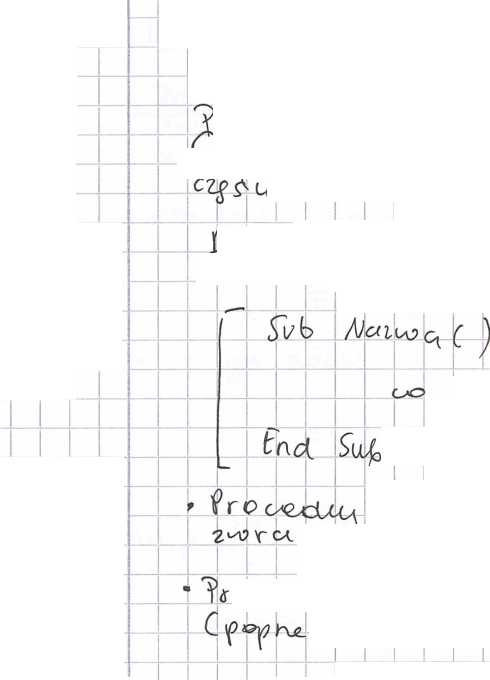 części
1
Sub Nazwa ( )
co
End Sub
• Procedu
zwra
• Pr
(popne